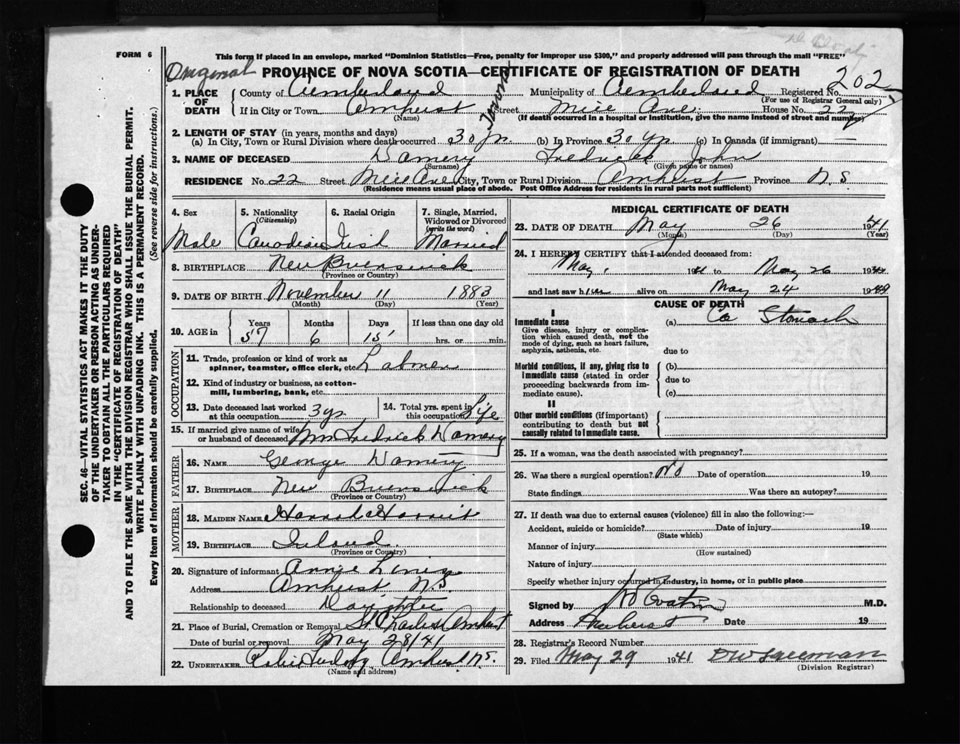 FORM 6
This form if placed in an envelope, marked "Dominion Statistics—Free, penalty for improper use $300," and properly addressed will pass through the mail "FREE"
Original PROVINCE OF NOVA SCOTIA—CERTIFICATE OF REGISTRATION OF DEATH 202
1. PLACE OF DEATH County of Cumberland Municipality of Cumberland Registered No.
(For use of Registrar General only)
If in City or Town Amherst (Name) Street Mice Ave. House No. 22
(If death occurred in a hospital or institution, give the name instead of street and number)
2. LENGTH OF STAY (in years, months and days)
(a) In City, Town or Rural Division where death occurred 30 yr. (b) In Province 30 yr. (c) In Canada (if immigrant)
3. NAME OF DECEASED Damery Fredrick John
(Surname) (Given name or names)
RESIDENCE No. 22 Street Mice Ave City, Town or Rural Division Amherst Province N.S.
(Residence means usual place of abode. Post Office Address for residents in rural parts not sufficient)
4. Sex Male
5. Nationality (Citizenship) Canadian
6. Racial Origin Irish
7. Single, Married, Widowed or Divorced (write the word) Married
8. BIRTHPLACE New Brunswick
(Province or Country)
9. DATE OF BIRTH November 11 1883
(Month) (Day) (Year)
10. AGE in Years Months Days If less than one day old
57 6 15 hrs. or min.
OCCUPATION
11. Trade, profession or kind of work as spinner, teamster, office clerk, etc. Labourer
12. Kind of industry or business, as cotton-mill, lumbering, bank, etc.
13. Date deceased last worked at this occupation 3 yr
14. Total yrs. spent in this occupation Life
15. If married give name of wife or husband of deceased Mrs Fredrick Damery
FATHER
16. NAME George Damery
17. BIRTHPLACE New Brunswick
(Province or Country)
MOTHER
18. MAIDEN NAME
19. BIRTHPLACE Ireland
(Province or Country)
20. Signature of informant Annie
Address Amherst N.S.
Relationship to deceased Daughter
21. Place of Burial, Cremation or Removal St Charles Amherst
Date of burial or removal May 28/41
22. UNDERTAKER Amherst N.S.
(Name and address)
MEDICAL CERTIFICATE OF DEATH
23. DATE OF DEATH May 26 1941
(Month) (Day) (Year)
24. I HEREBY CERTIFY that I attended deceased from:
May, 1941 to May 26 1941
and last saw him alive on May 24 19
CAUSE OF DEATH
I
Immediate cause (a) Ca Stomach
Give disease, injury or complication which caused death, not the mode of dying, such as heart failure, asphyxia, asthenia, etc.
due to
Morbid conditions, if any, giving rise to immediate cause (stated in order proceeding backwards from immediate cause).
(b)
due to
(c)
II
Other morbid conditions (if important) contributing to death but not causally related to immediate cause.
25. If a woman, was the death associated with pregnancy?
26. Was there a surgical operation? No Date of operation 19
State findings Was there an autopsy?
27. If death was due to external causes (violence) fill in also the following:—
Accident, suicide or homicide? Date of injury 19
(State which)
Manner of injury
(How sustained)
Nature of injury
Specify whether injury occurred in industry, in home, or in public place
Signed by M.D.
Address Amherst Date 19
28. Registrar's Record Number
29. Filed May 29 1941
(Division Registrar)
SEC. 46—VITAL STATISTICS ACT MAKES IT THE DUTY
OF THE UNDERTAKER OR PERSON ACTING AS UNDER-
TAKER TO OBTAIN ALL THE PARTICULARS REQUIRED
IN THE "CERTIFICATE OF REGISTRATION OF DEATH"
AND TO FILE THE SAME WITH THE DIVISION REGISTRAR WHO SHALL ISSUE THE BURIAL PERMIT.
WRITE PLAINLY WITH UNFADING INK. THIS IS A PERMANENT RECORD.
Every item of information should be carefully supplied. (See reverse side for instructions.)